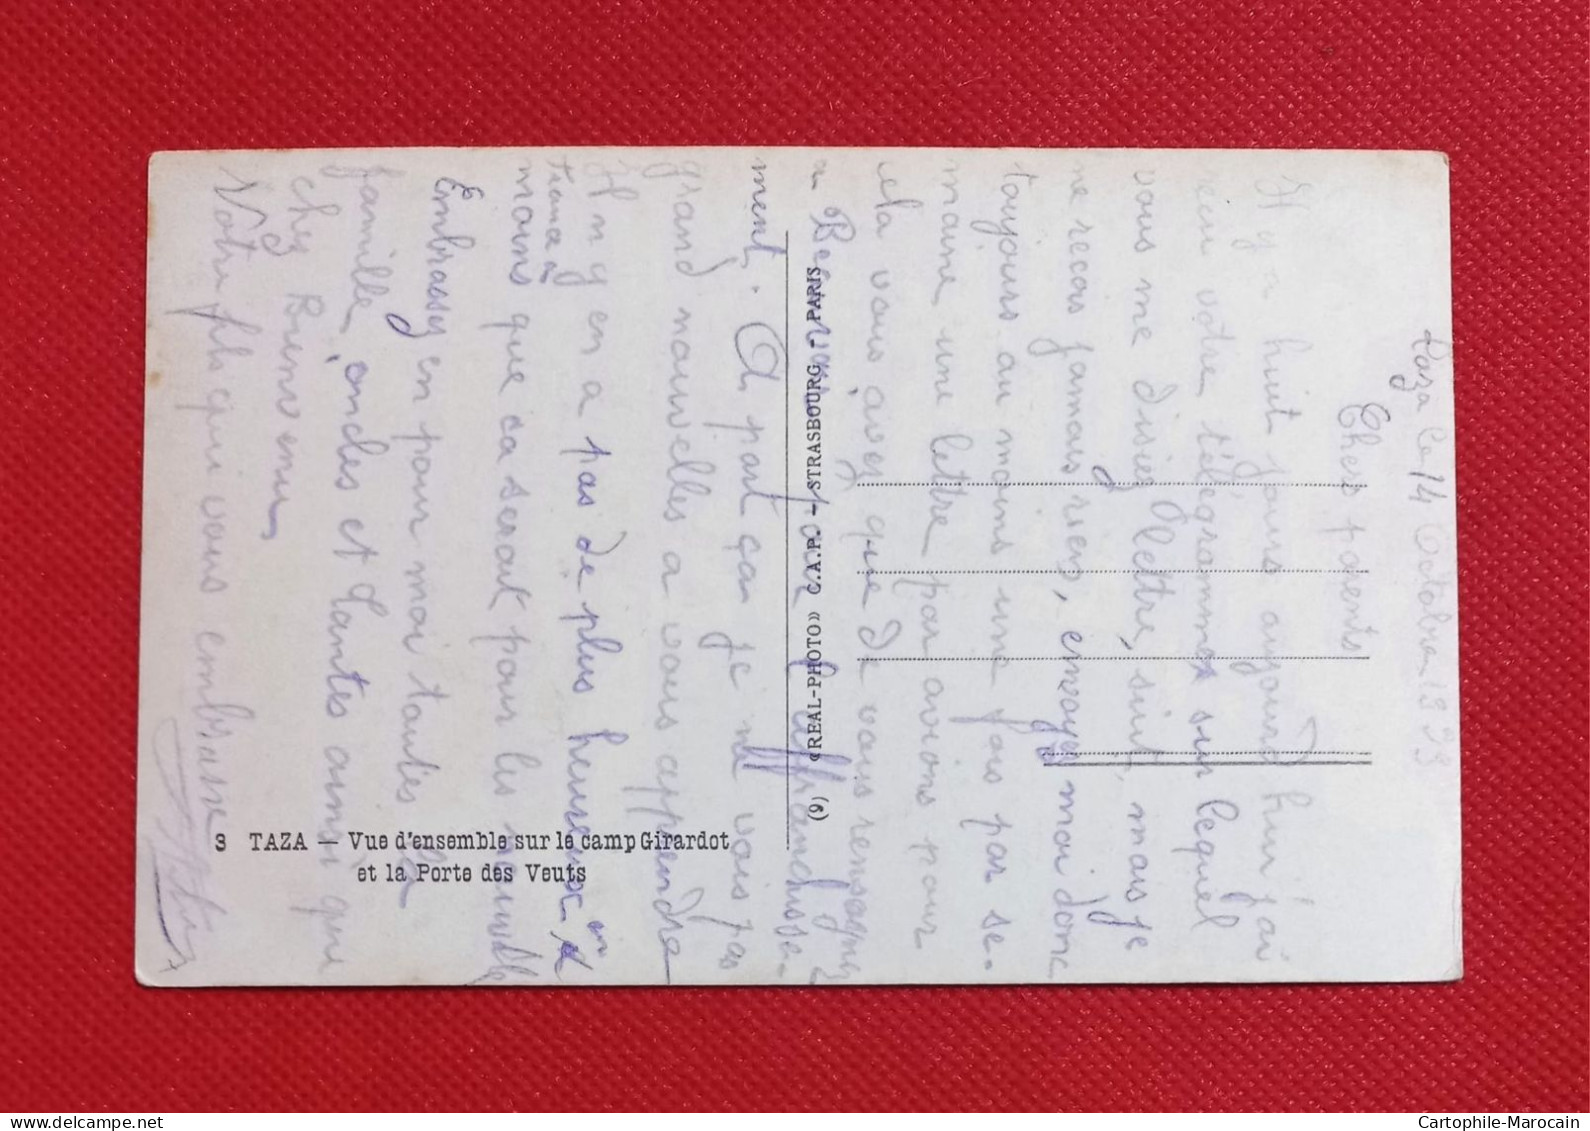 Taza le 14 Octobre 1939
Chers parents
Il y a huit jours aujourd'hui j'ai
reçu votre télégramme sur lequel
vous me disiez lettre, suit, mais je
ne recois jamais rien, envoyez moi donc
toujours au moins une fois par se-
maine une lettre par avions pour
cela vous avez que de vous renseigner
a Bec pour l'affranchisse-
ment. A part ça je ne vois pas
grand nouvelles a vous apprendre
Il n y en a pas de plus heureux en
moins que ca serait pour les nouvelle
Embrassez en pour moi toutes la
famille, oncles et tantes ainsi que
chez Bienvenu
Votre fils qui vous embrasse
3 TAZA — Vue d'ensemble sur le camp Girardot
et la Porte des Veuts
(9) «REAL-PHOTO» C.A.P. - STRASBOURG - PARIS
Cartophile-Marocain